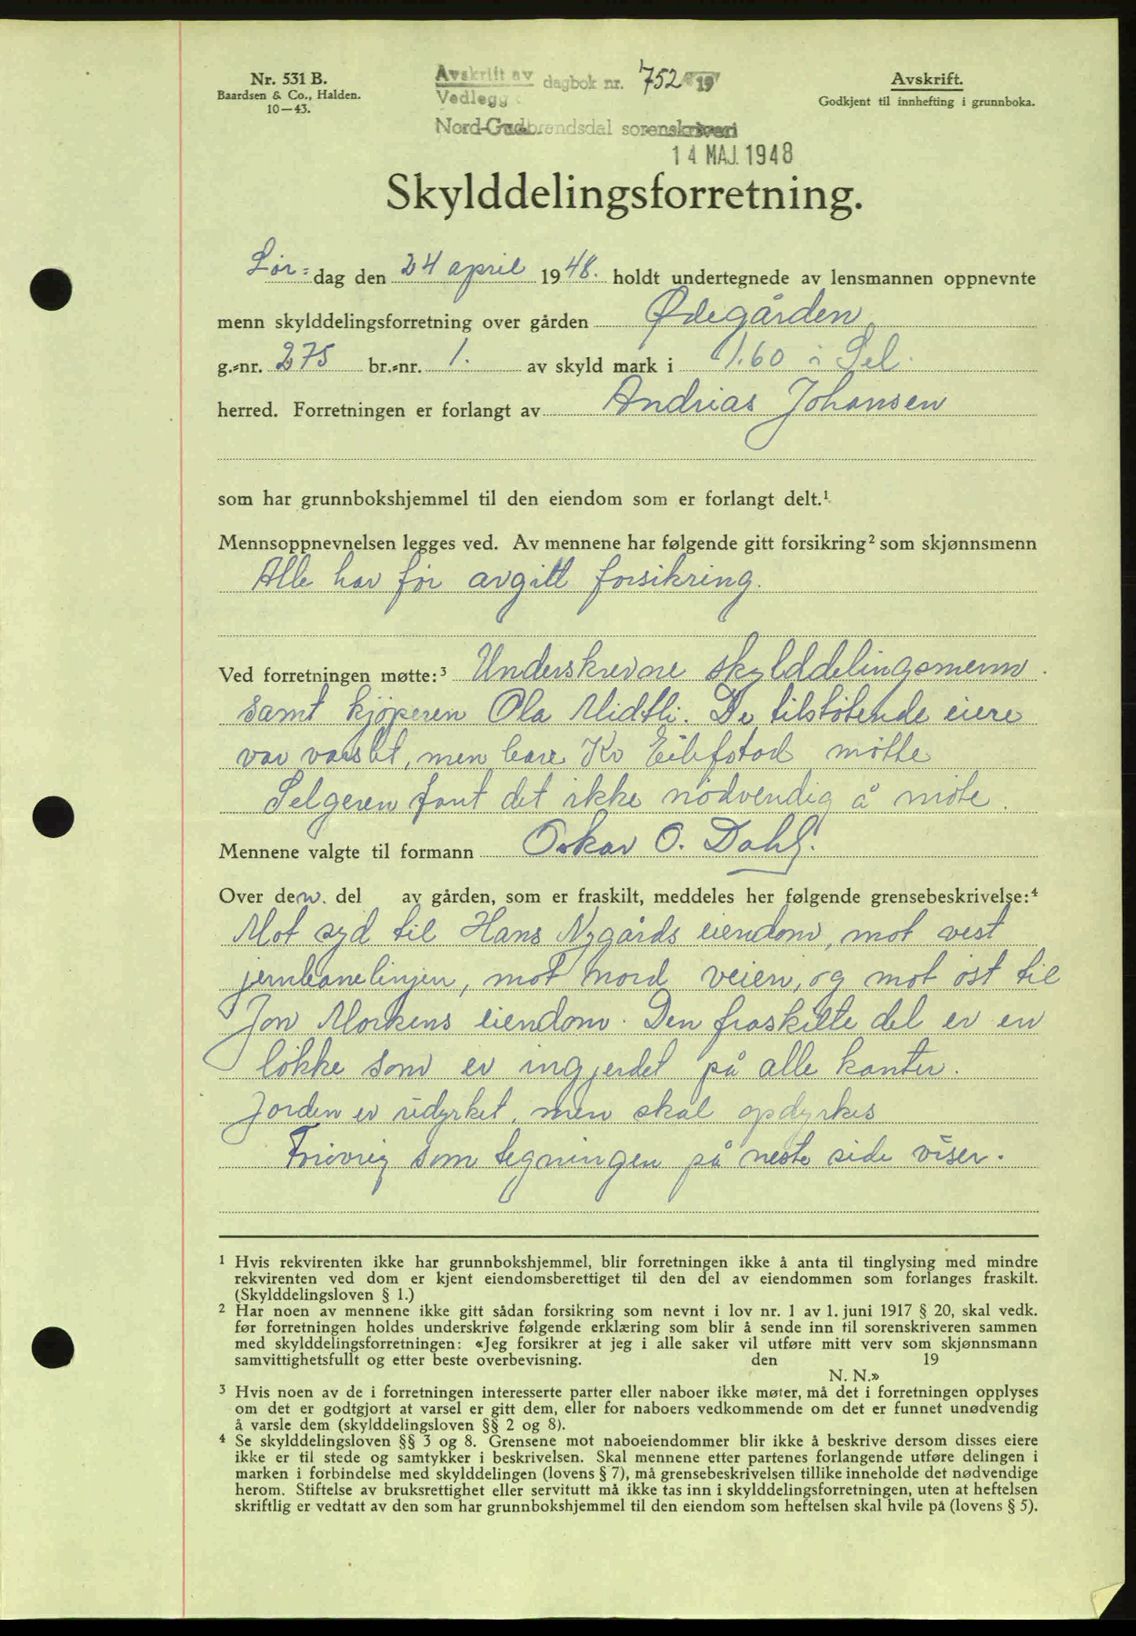 Nr. 531 B.
Baardsen & Co., Halden.
10—43.
Avskrift av dagbok nr. 752 19
Vedlegg
Nord-Gudbrandsdal sorenskriveri
14 MAJ. 1948
Avskrift.
Godkjent til innhefting i grunnboka.
Skylddelingsforretning.
Lør- dag den 24 april 1948. holdt undertegnede av lensmannen oppnevnte
menn skylddelingsforretning over gården Ødegården
g.-nr. 275 br.-nr. 1. av skyld mark i 1.60 i Sel.
herred. Forretningen er forlangt av Andrias Johansen
som har grunnbokshjemmel til den eiendom som er forlangt delt.¹
Mennsoppnevnelsen legges ved. Av mennene har følgende gitt forsikring² som skjønnsmenn
Alle har før avgitt forsikring.
Ved forretningen møtte:³ Underskrevne skylddelingsmenn
samt kjøperen Ola Midtli. De tilstøtende eiere
var varslet, men bare Kr møtte
Selgeren fant det ikke nødvendig å møte.
Mennene valgte til formann Oskar O. Dahl.
Over den. del av gården, som er fraskilt, meddeles her følgende grensebeskrivelse:⁴
Mot syd til Hans Nygårds eiendom, mot vest
jernbanelinjen, mot nord veien, og mot øst til
Jon Morkens eiendom. Den fraskilte del er en
løkke som er ingjerdet på alle kanter.
Jorden er udyrket, men skal opdyrkes
Forøvrig som tegningen på neste side viser.
¹ Hvis rekvirenten ikke har grunnbokshjemmel, blir forretningen ikke å anta til tinglysing med mindre
rekvirenten ved dom er kjent eiendomsberettiget til den del av eiendommen som forlanges fraskilt.
(Skylddelingsloven § 1.)
² Har noen av mennene ikke gitt sådan forsikring som nevnt i lov nr. 1 av 1. juni 1917 § 20, skal vedk.
før forretningen holdes underskrive følgende erklæring som blir å sende inn til sorenskriveren sammen
med skylddelingsforretningen: «Jeg forsikrer at jeg i alle saker vil utføre mitt verv som skjønnsmann
samvittighetsfullt og etter beste overbevisning. den 19
N. N.»
³ Hvis noen av de i forretningen interesserte parter eller naboer ikke møter, må det i forretningen opplyses
om det er godtgjort at varsel er gitt dem, eller for naboers vedkommende om det er funnet unødvendig
å varsle dem (skylddelingsloven §§ 2 og 8).
⁴ Se skylddelingsloven §§ 3 og 8. Grensene mot naboeiendommer blir ikke å beskrive dersom disses eiere
ikke er til stede og samtykker i beskrivelsen. Skal mennene etter partenes forlangende utføre delingen i
marken i forbindelse med skylddelingen (lovens § 7), må grensebeskrivelsen tillike inneholde det nødvendige
herom. Stiftelse av bruksrettighet eller servitutt må ikke tas inn i skylddelingsforretningen, uten at heftelsen
skriftlig er vedtatt av den som har grunnbokshjemmel til den eiendom som heftelsen skal hvile på (lovens § 5).